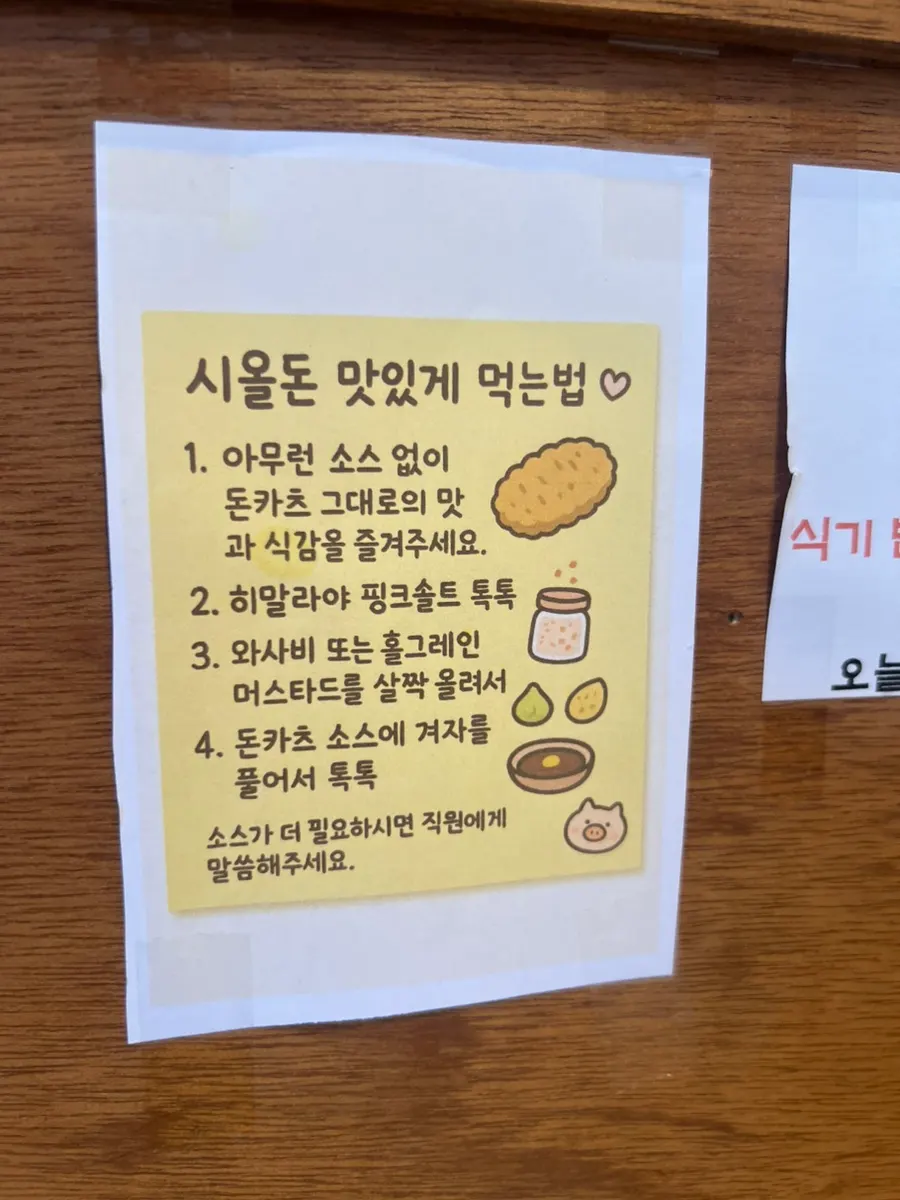 시올돈 맛있게 먹는법♡
1. 아무런 소스 없이
돈카츠 그대로의 맛
과 식감을 즐겨주세요.
2. 히말라야 핑크솔트 톡톡
3. 와사비 또는 홀그레인
머스타드를 살짝 올려서
4. 돈카츠 소스에 겨자를
풀어서 톡톡
소스가 더 필요하시면 직원에게
말씀해주세요.
식기
오늘